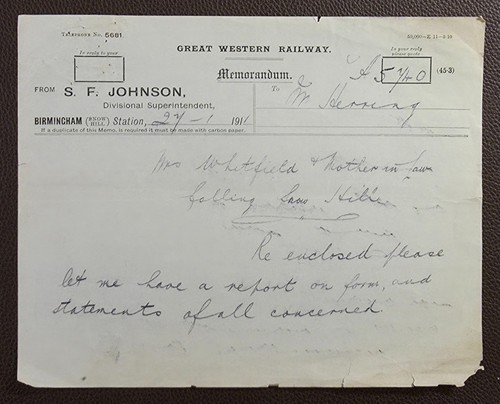 TELEPHONE NO. 5681.
GREAT WESTERN RAILWAY.
In reply to your
In reply please quote
Memorandum.
A 5740 (45-3)
FROM S. F. JOHNSON,
Divisional Superintendent,
To
Mr Herring
BIRMINGHAM (SNOW HILL) Station, 27-1 1911
If a duplicate of this Memo. is required it must be made with carbon paper.
Mrs Whitfield & Mother in law
falling Snow Hill
Re enclosed please
let me have a report on form, and
statements of all concerned